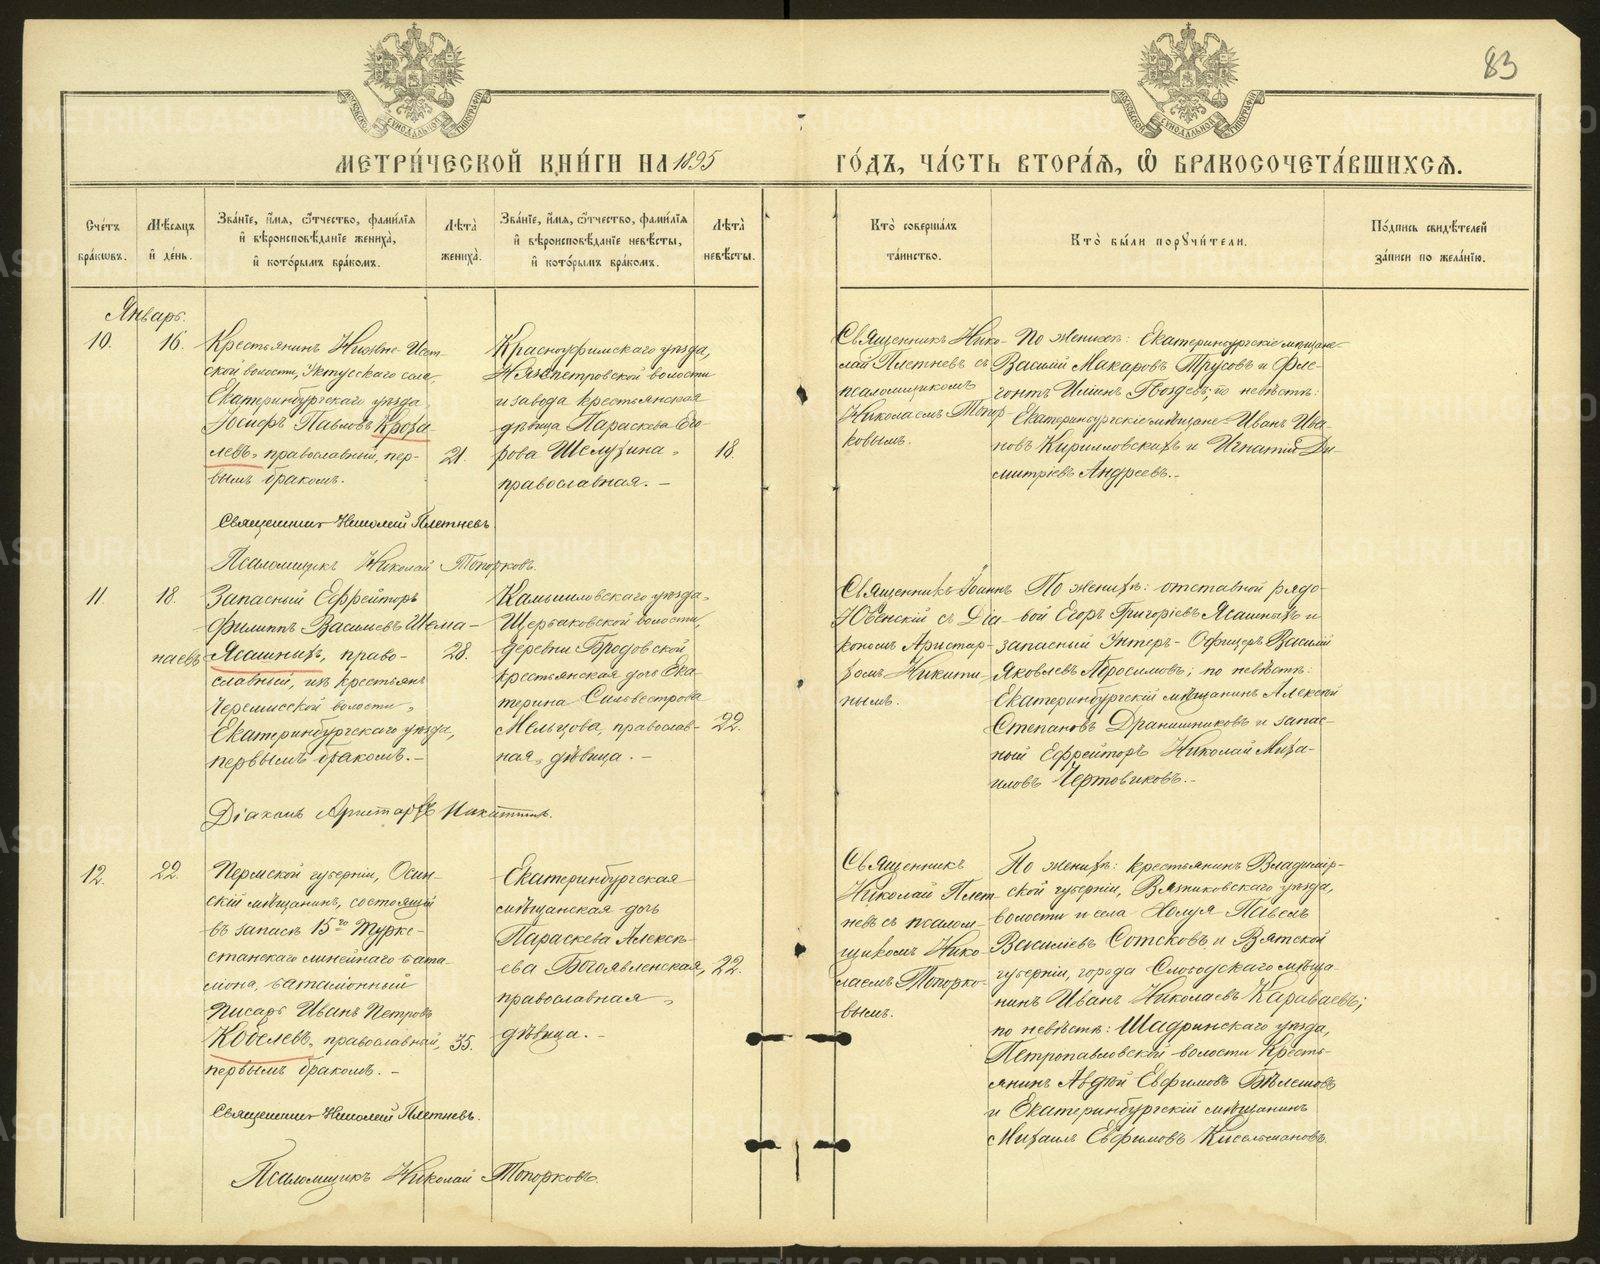 83
МЕТРИ́ЧЕСКОЙ КНИ́ГИ НА 1895 ГО́ДЪ, ЧА́СТЬ ВТОРА́Ѧ, Ѿ БРАКОСОЧЕТА́ВШИХСѦ.
Сче́тъ бра́кѡвъ.
Мѣ́сѧцъ и҆ де́нь.
Зва́нїе, и҆́мѧ, ѻ҆́тчество, фами́лїѧ и҆ вѣроисповѣ́данїе жениха̀, и҆ кото́рымъ бра́комъ.
Лѣ́та жениха̀.
Зва́нїе, и҆́мѧ, ѻ҆́тчество, фами́лїѧ и҆ вѣроисповѣ́данїе невѣ́сты, и҆ кото́рымъ бра́комъ.
Лѣ́та невѣ́сты.
Кто̀ соверша́лъ та́инство.
Кто̀ бы́ли порꙋчи́тели.
По́дпись свидѣ́телей за́писи по жела́нїю.
Январь.
10.
16.
Крестьянинъ Нижне-Исет-
ской волости, Уктусскаго села,
Екатеринбургскаго уѣзда
Іосифъ Павловъ Кроха-
левъ, православный, пер-
вымъ бракомъ.
21.
Красноуфимскаго уѣзда,
Нязепетровской волости
и завода крестьянская
дѣвица Параскева Его-
рова Шелухина,
православная. –
18.
Священникъ Нико-
лай Плетневъ съ
псаломщикомъ
Николаемъ Топор-
ковымъ.
По женихѣ: Екатеринбургскіе мѣщане
Василій Макаровъ Трусовъ и Фле-
гонтъ Ильинъ Гвоздевъ; по невѣстѣ:
Екатеринбургскіе мѣщане Иванъ Ива-
новъ Кирилловскихъ и Игнатій Ди-
митріевъ Андреевъ. –
Священникъ Николай Плетневъ.
Псаломщикъ Николай Топорковъ.
11.
18.
Запасный Ефрейторъ
Филиппъ Васильевъ Шема-
наевъ Ясашныхъ, право-
славный, изъ крестьянъ
Черемисской волости,
Екатеринбургскаго уѣзда,
первымъ бракомъ. –
28.
Камышловскаго уѣзда,
Щербаковской волости,
деревни Бродовской
крестьянская дочь Ека-
терина Сильвестрова
Мельцова, православ-
ная, дѣвица. –
22.
Священникъ Іоаннъ
Ювенскій съ Діа-
кономъ Аристар-
хомъ Никити-
нымъ.
По женихѣ: отставной рядо-
вой Егоръ Григоріевъ Ясашныхъ и
запасный Унтеръ-Офицеръ Василій
Яковлевъ Абросимовъ; по невѣстѣ:
Екатеринбургскій мѣщанинъ Алексѣй
Степановъ Дранишниковъ и запас-
ный Ефрейторъ Николай Миха-
иловъ Чертовиковъ. –
Діаконъ Аристархъ Никитинъ.
12.
22.
Пермской губерніи, Осин-
скій мѣщанинъ, состоящій
въ запасѣ 15го Турке-
станскаго линейнаго бата-
ліона, баталіонный
писарь Иванъ Петровъ
Кобелевъ, православный,
первымъ бракомъ. –
35.
Екатеринбургская
мѣщанская дочь
Параскева Алексѣ-
ева Богоявленская,
православная,
дѣвица. –
22.
Священникъ
Николай Плет-
невъ съ псалом-
щикомъ Нико-
лаемъ Топорко-
вымъ.
По женихѣ: крестьянинъ Владимір-
ской губерніи, Вязниковскаго уѣзда,
волости и села Холуя Павелъ
Васильевъ Сотсковъ и Вятской
губерніи, города Слободскаго мѣща-
нинъ Иванъ Николаевъ Караваевъ;
по невѣстѣ: Шадринскаго уѣзда,
Петропавловской волости кресть-
янинъ Авдѣй Евфимовъ Бѣлешовъ
и Екатеринбургскій мѣщанинъ
Михаилъ Евфимовъ Кисельмановъ.
Священникъ Николай Плетневъ.
Псаломщикъ Николай Топорковъ.